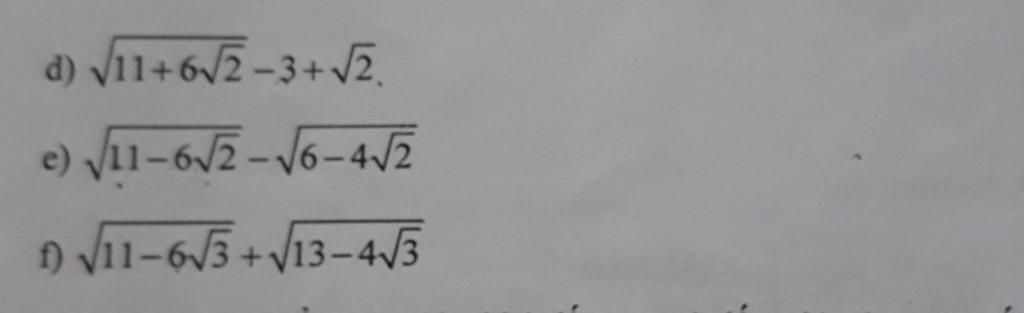 d) √(11+6√2) −3+√2
e) √(11−6√2) − √(6−4√2)
f) √(11−6√3) + √(13−4√3)